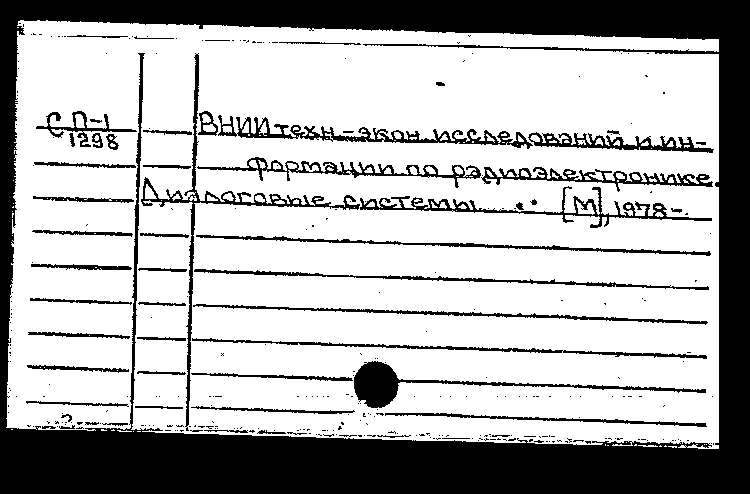 С П-1
1298
ВНИИ техн-экон исследований и ин-
формации по радиоэлектронике.
Диалоговые системы ... [М], 1978-.